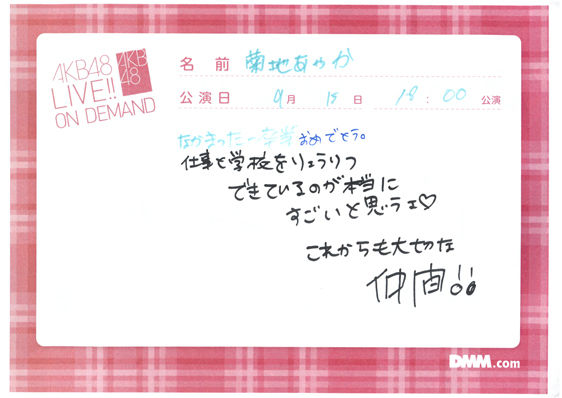 AKB48
LIVE!!
ON DEMAND
AKB
48
名前 菊地あやか
公演日 9月 18日 18:00 公演
なかまったー
おめでとう。
仕事と学校をりょうりつ
できているのが本当に
すごいと思うェ♡
これからも大切な
仲間!!
DMM.com